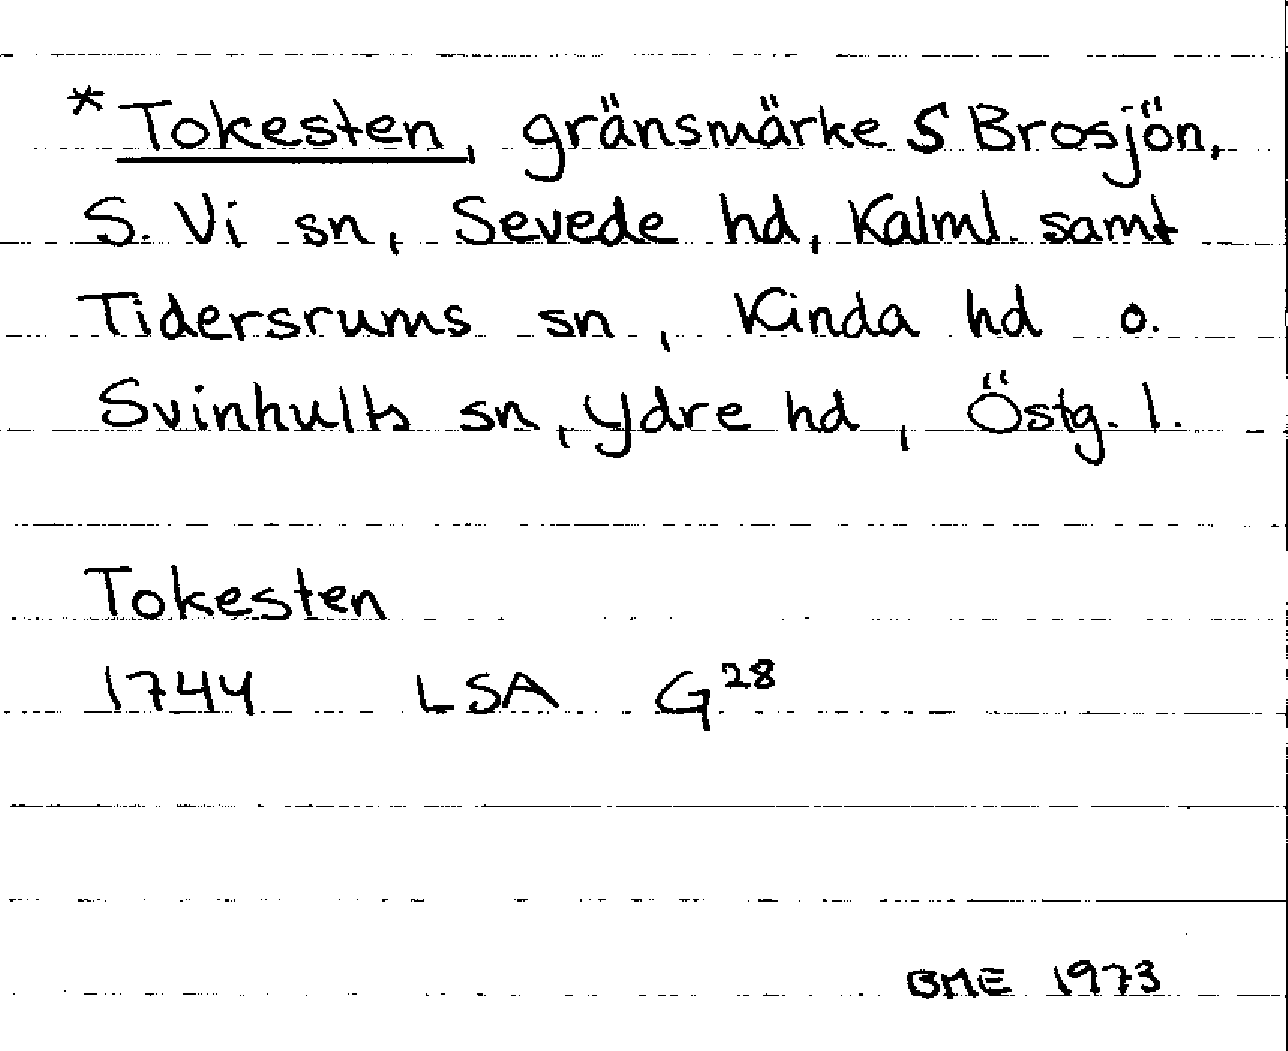 *Tokesten, gränsmärke S Brosjön,
S. Vi sn, Sevede hd, Kalml. samt
Tidersrums sn, Kinda hd o.
Svinhults sn, Ydre hd, Östg. l.
Tokesten
1744 LSA G28
BME 1973